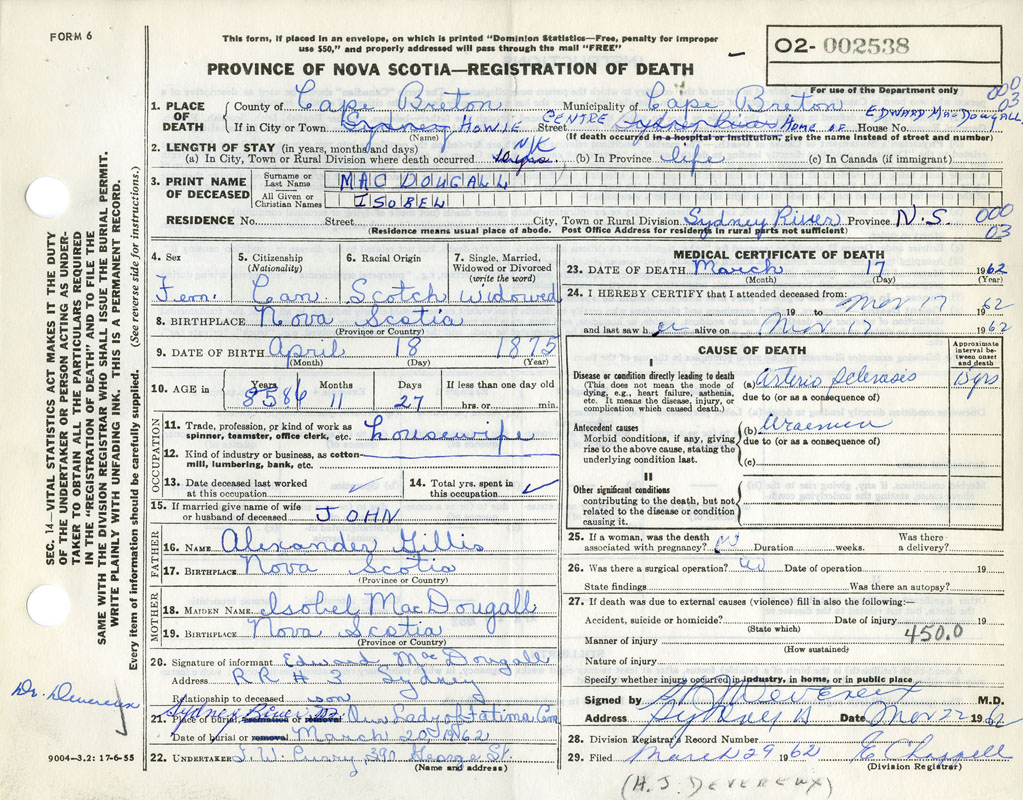 FORM 6
This form, if placed in an envelope, on which is printed "Dominion Statistics—Free, penalty for improper
use $50," and properly addressed will pass through the mail "FREE"
O2- 002538
PROVINCE OF NOVA SCOTIA—REGISTRATION OF DEATH
For use of the Department only 000
03
1. PLACE OF DEATH
County of Cape Breton Municipality of Cape Breton
EDWARD MACDOUGALL
If in City or Town Sydney HOWIE Street CENTRE HOME House No.
(Name) (If death occurred in a hospital or institution, give the name instead of street and number)
2. LENGTH OF STAY (in years, months and days)
(a) In City, Town or Rural Division where death occurred NK (b) In Province life (c) In Canada (if immigrant)
3. PRINT NAME OF DECEASED
Surname or Last Name MAC DOUGALL
All Given or Christian Names ISOBEL
RESIDENCE No. Street City, Town or Rural Division Sydney River Province N.S. 000
03
(Residence means usual place of abode. Post Office Address for residents in rural parts not sufficient)
4. Sex 5. Citizenship (Nationality) 6. Racial Origin 7. Single, Married, Widowed or Divorced (write the word)
Fem. Can. Scotch widowed
8. BIRTHPLACE Nova Scotia
(Province or Country)
9. DATE OF BIRTH April 18 1875
(Month) (Day) (Year)
10. AGE in Years Months Days If less than one day old
85 86 11 27 hrs. or min.
OCCUPATION
11. Trade, profession, or kind of work as
spinner, teamster, office clerk, etc. housewife
12. Kind of industry or business, as cotton-
mill, lumbering, bank, etc.
13. Date deceased last worked
at this occupation
14. Total yrs. spent in
this occupation
15. If married give name of wife
or husband of deceased JOHN
FATHER
16. NAME Alexander Gillis
17. BIRTHPLACE Nova Scotia
(Province or Country)
MOTHER
18. MAIDEN NAME Isobel MacDougall
19. BIRTHPLACE Nova Scotia
(Province or Country)
20. Signature of informant Edward MacDougall
Address RR # 3 Sydney
Relationship to deceased son
Sydney River
21. Place of burial, cremation or removal Our Lady of Fatima Cem
Date of burial or removal March 20 1962
22. UNDERTAKER T. W. Curry, 390 George St.
(Name and address)
MEDICAL CERTIFICATE OF DEATH
23. DATE OF DEATH March 17 1962
(Month) (Day) (Year)
24. I HEREBY CERTIFY that I attended deceased from:
19 to Mar 17 1962
and last saw her alive on Mar 17 1962
CAUSE OF DEATH
Approximate interval between onset and death
I
Disease or condition directly leading to death
(This does not mean the mode of
dying, e.g., heart failure, asthenia,
etc. It means the disease, injury, or
complication which caused death.)
(a) Arterio Sclerosis 15 yrs
due to (or as a consequence of)
Antecedent causes
Morbid conditions, if any, giving
rise to the above cause, stating the
underlying condition last.
(b) Uraemia
due to (or as a consequence of)
(c)
II
Other significant conditions
contributing to the death, but not
related to the disease or condition
causing it.
25. If a woman, was the death
associated with pregnancy? No Duration weeks. Was there
a delivery?
26. Was there a surgical operation? no Date of operation 19
State findings Was there an autopsy?
27. If death was due to external causes (violence) fill in also the following:—
Accident, suicide or homicide? Date of injury 19
(State which)
450.0
Manner of injury
(How sustained)
Nature of injury
Specify whether injury occurred in industry, in home, or in public place
Signed by H J Devereux M.D.
Address Sydney NS Date Mar 22 1962
28. Division Registrar's Record Number
29. Filed March 29 1962 E Chappell
(Division Registrar)
(H. J. DEVEREUX)
SEC. 14—VITAL STATISTICS ACT MAKES IT THE DUTY
OF THE UNDERTAKER OR PERSON ACTING AS UNDER-
TAKER TO OBTAIN ALL THE PARTICULARS REQUIRED
IN THE "REGISTRATION OF DEATH" AND TO FILE THE
SAME WITH THE DIVISION REGISTRAR WHO SHALL ISSUE THE BURIAL PERMIT.
WRITE PLAINLY WITH UNFADING INK. THIS IS A PERMANENT RECORD.
Every item of information should be carefully supplied. (See reverse side for instructions.)
Dr. Devereux
9004—3.2: 17-6-55